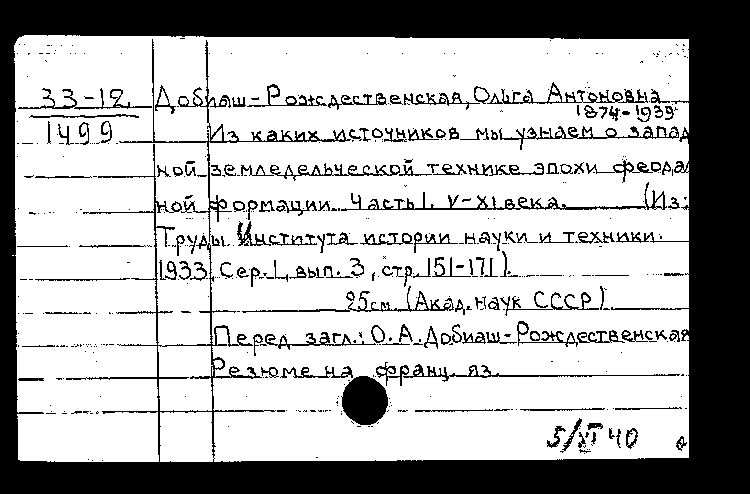 33-12
1499
Добиаш-Рождественская, Ольга Антоновна
1874-1939
Из каких источников мы узнаем о запад
ной земледельческой технике эпохи феодал
ной формации. Часть I. V-XI века. (Из:
Труды Института истории науки и техники.
1933, Сер. 1, вып. 3, стр. 151-171).
25см. (Акад. наук СССР)
Перед загл.: О. А. Добиаш-Рождественская
Резюме на франц. яз.
5/XI 40